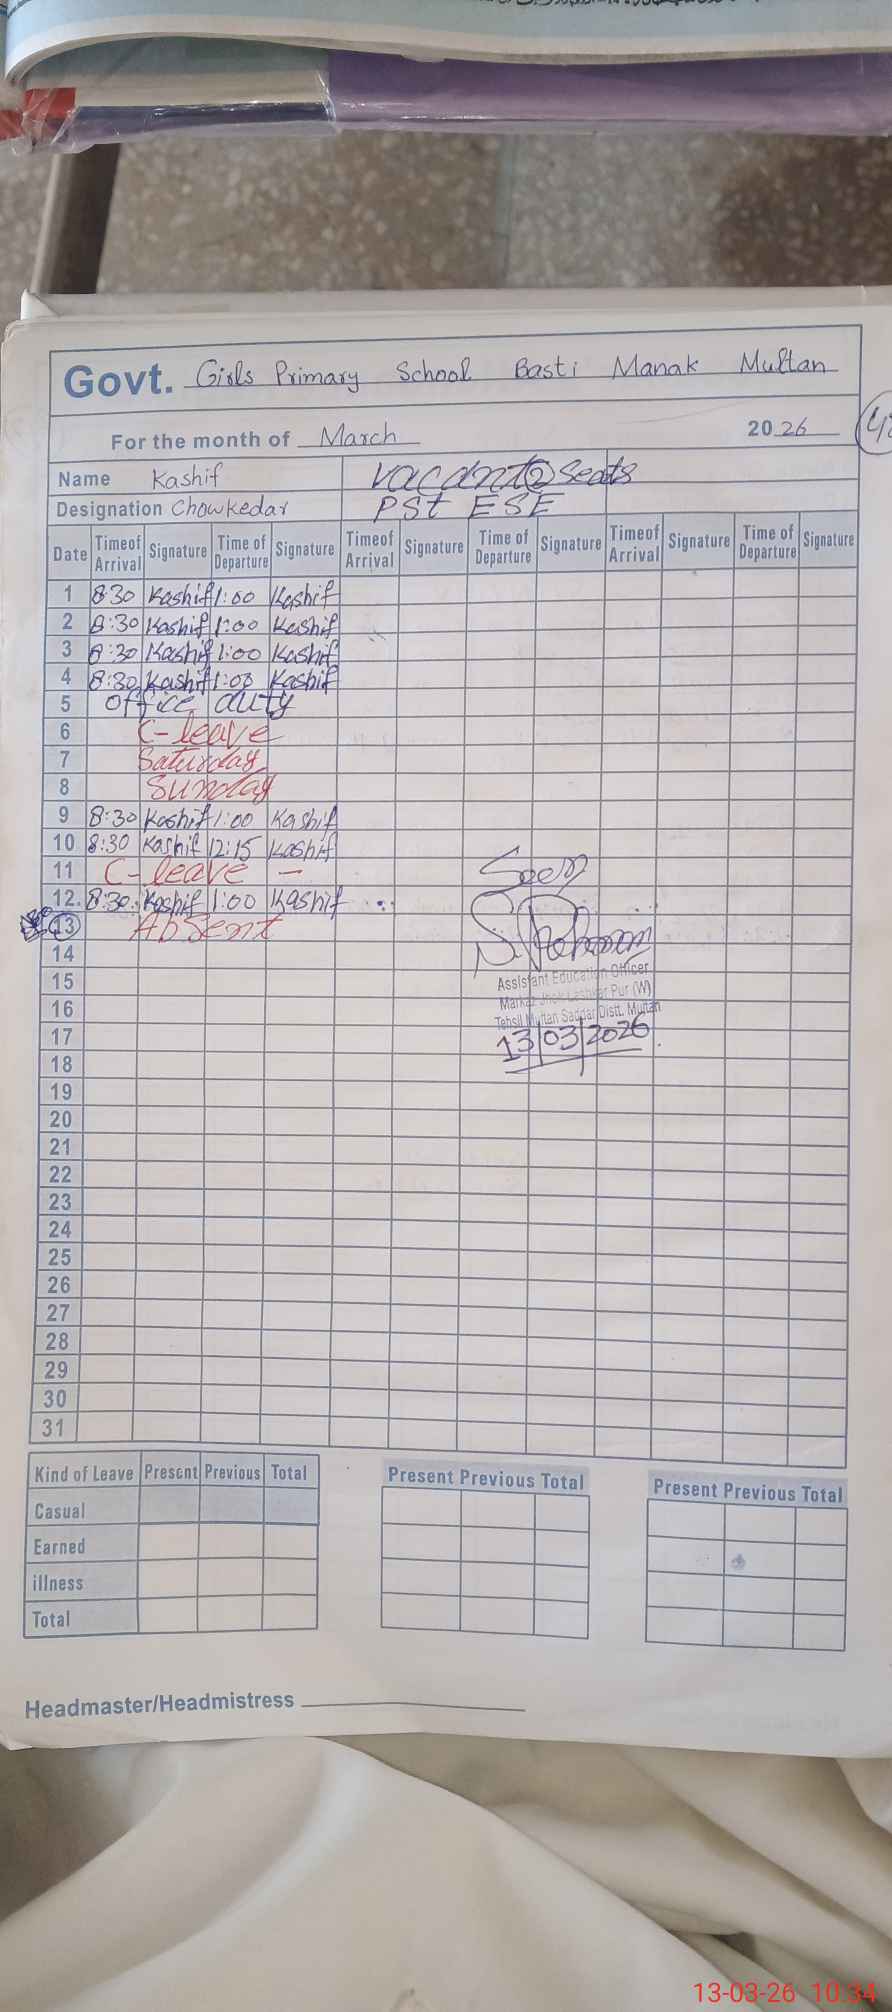 Govt. Girls Primary School Basti Manak Multan
For the month of March 2026
Name Kashif vacant 2 Seats
Designation Chowkedar PSt ESE
Date Timeof Arrival Signature Time of Departure Signature Timeof Arrival Signature Time of Departure Signature Timeof Arrival Signature Time of Departure Signature
1 8:30 Kashif 1:00 Kashif
2 8:30 Kashif 1:00 Kashif
3 8:30 Kashif 1:00 Kashif
4 8:30 Kashif 1:00 Kashif
5 office duty
6 C-leave
7 Saturday
8 Sunday
9 8:30 Kashif 1:00 Kashif
10 8:30 Kashif 12:15 Kashif
11 C-leave -
12 8:30 Kashif 1:00 Kashif
13 Absent
Seen
14
15
16
17
Assistant Education Officer
Markaz Lashkar Pur (W)
Tehsil Multan Saddar Distt. Multan
13/03/2026
18
19
20
21
22
23
24
25
26
27
28
29
30
31
Kind of Leave Present Previous Total Present Previous Total Present Previous Total
Casual
Earned
illness
Total
Headmaster/Headmistress
13-03-26 10:34